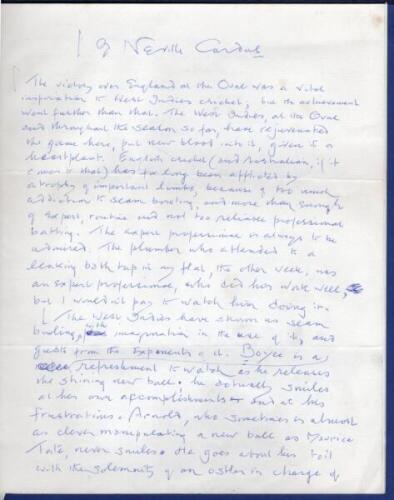 By Neville Cardus
The victory over England at the Oval was a vital
inspiration to West Indies cricket; but the achievement
went further than that. The West Indies, at the Oval
and throughout the season so far, have rejuvenated
the game here, put new blood into it, given it a
heartplant. English cricket (and Australian, if it
comes to that) has too long been afflicted by
atrophy of important limbs, because of too much
addiction to seam bowling, and more than enough
of expert, routine and not too reliable professional
batting. The expert professional is always to be
admired. The plumber who attended to a
leaking bath tap in my flat, the other week, was
an expert professional, who did his work well,
but I wouldn't pay to watch him doing it.
The West Indies have shown us seam
bowling, with imagination in the use of it, and
from the exponents of it. Boyce is a
refreshment to watch as he releases
the shining new ball; he actually smiles
at his own accomplishments and at his
frustrations. Arnold, who sometimes is almost
as clever manipulating a new ball as Maurice
Tate, never smiles. He goes about his toil
with the solemnity of an ostler in charge of